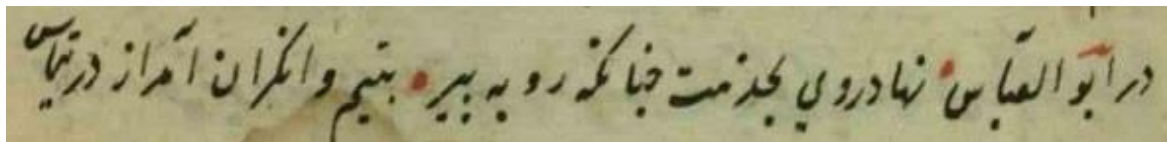 در ابو العباس نهاد روی بخدمت چنانکه رو به پیر یتیم و انکران آمد از در تیاس